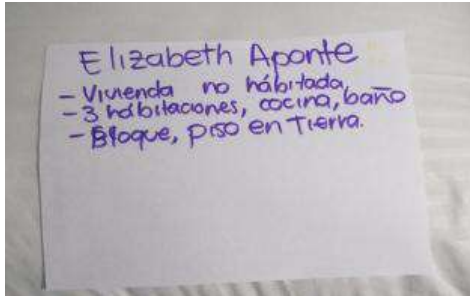 Elizabeth Aponte
- Vivienda no hábitada,
- 3 hábitaciones, cocina, baño
- Bloque, piso en Tierra.